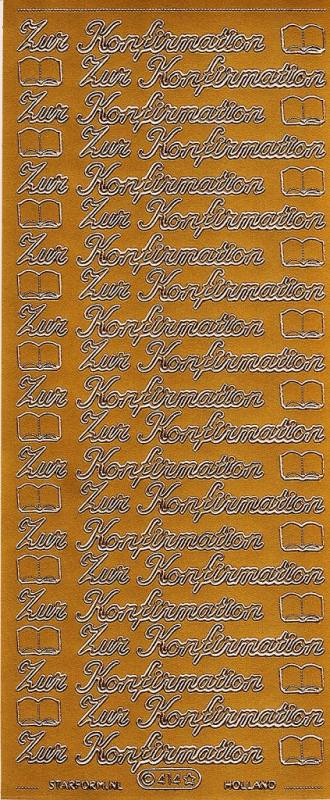 Zur Konfirmation
Zur Konfirmation
Zur Konfirmation
Zur Konfirmation
Zur Konfirmation
Zur Konfirmation
Zur Konfirmation
Zur Konfirmation
Zur Konfirmation
Zur Konfirmation
Zur Konfirmation
Zur Konfirmation
Zur Konfirmation
Zur Konfirmation
Zur Konfirmation
Zur Konfirmation
Zur Konfirmation
Zur Konfirmation
Zur Konfirmation
Zur Konfirmation
Zur Konfirmation
STARFORM.NL © 414 ☆ HOLLAND